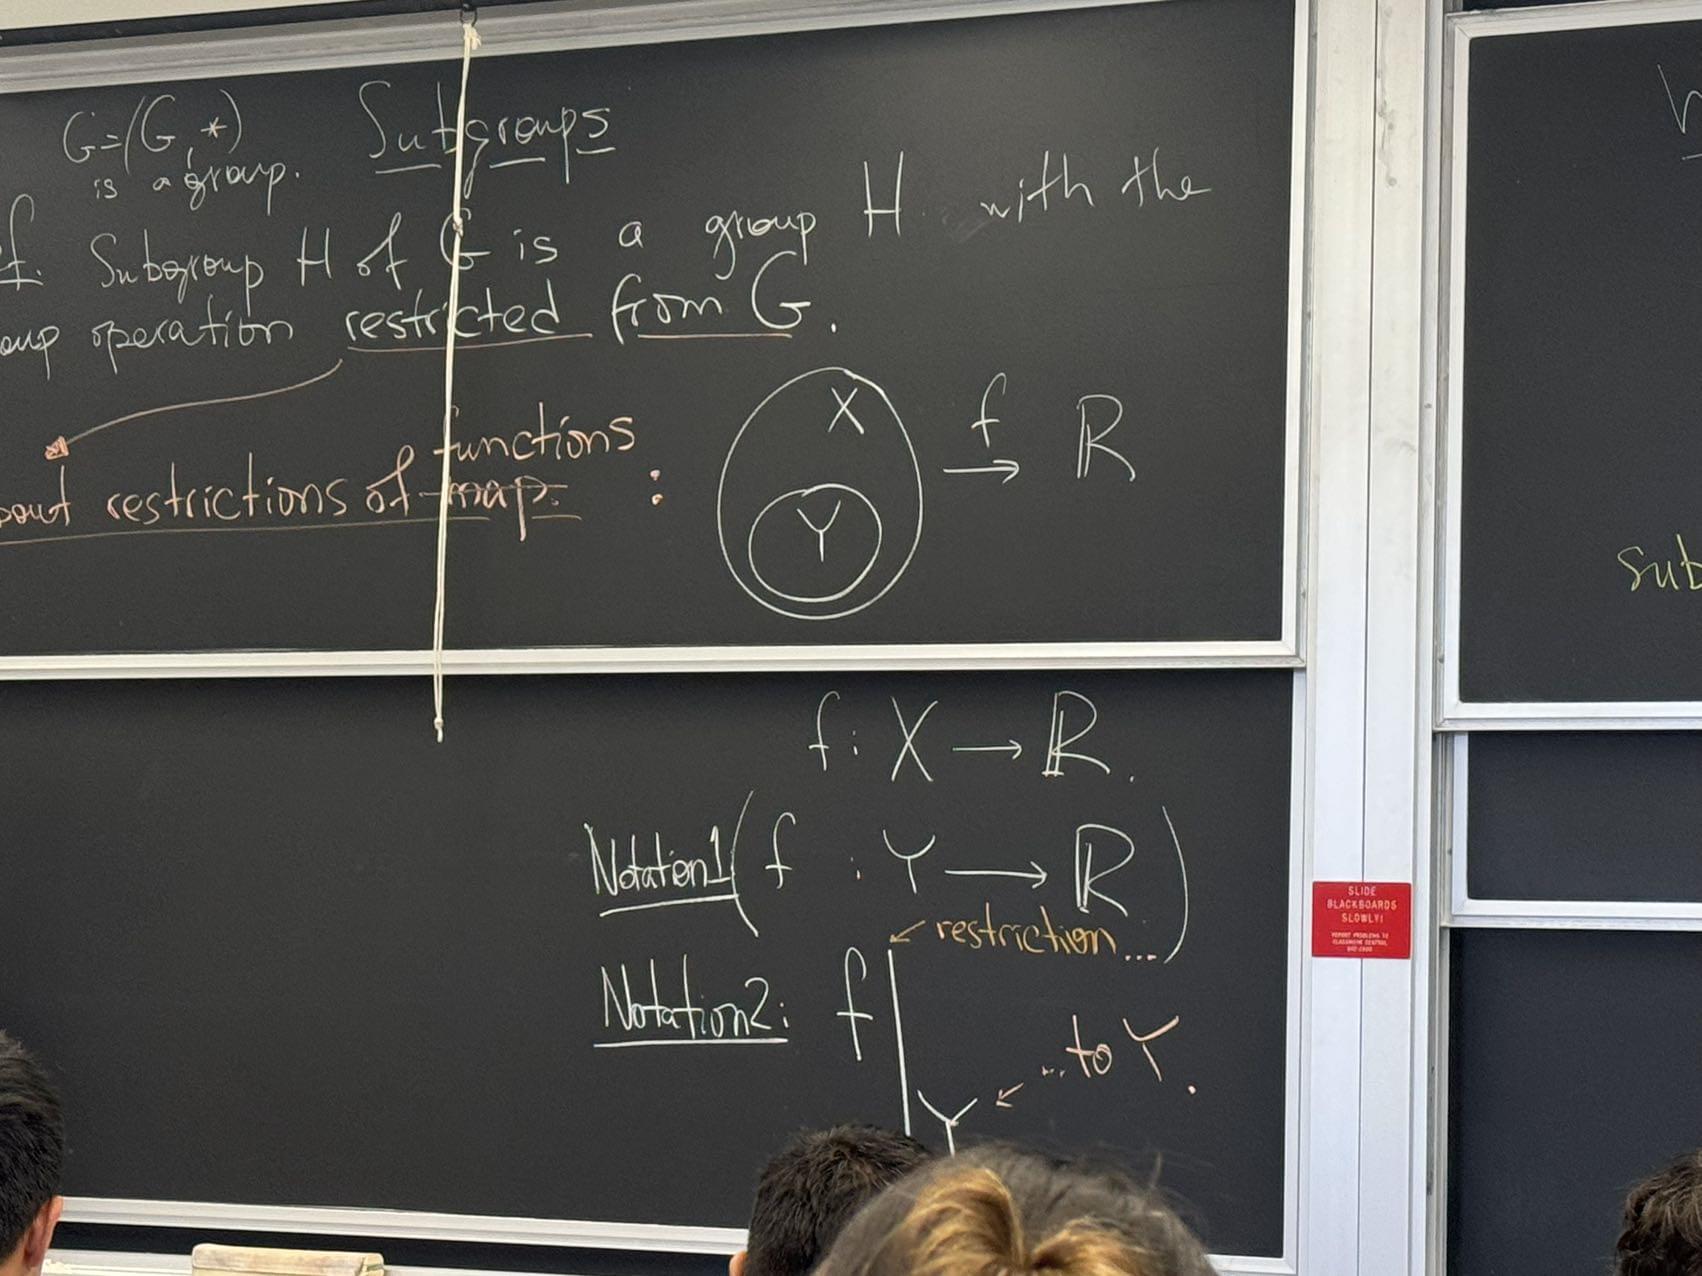 G=(G,*)
is a group.
Subgroups
Subgroup H of G is a group H with the
operation restricted from G.
restrictions of map.
functions
:
X
Y
f
→ ℝ
f: X → ℝ.
Notation1 (f : Y → ℝ)
← restriction...
Notation2: f|
Y ← ...to Y.
sub
SLIDE
BLACKBOARDS
SLOWLY!
REPORT PROBLEMS TO
CLASSROOM CENTRAL